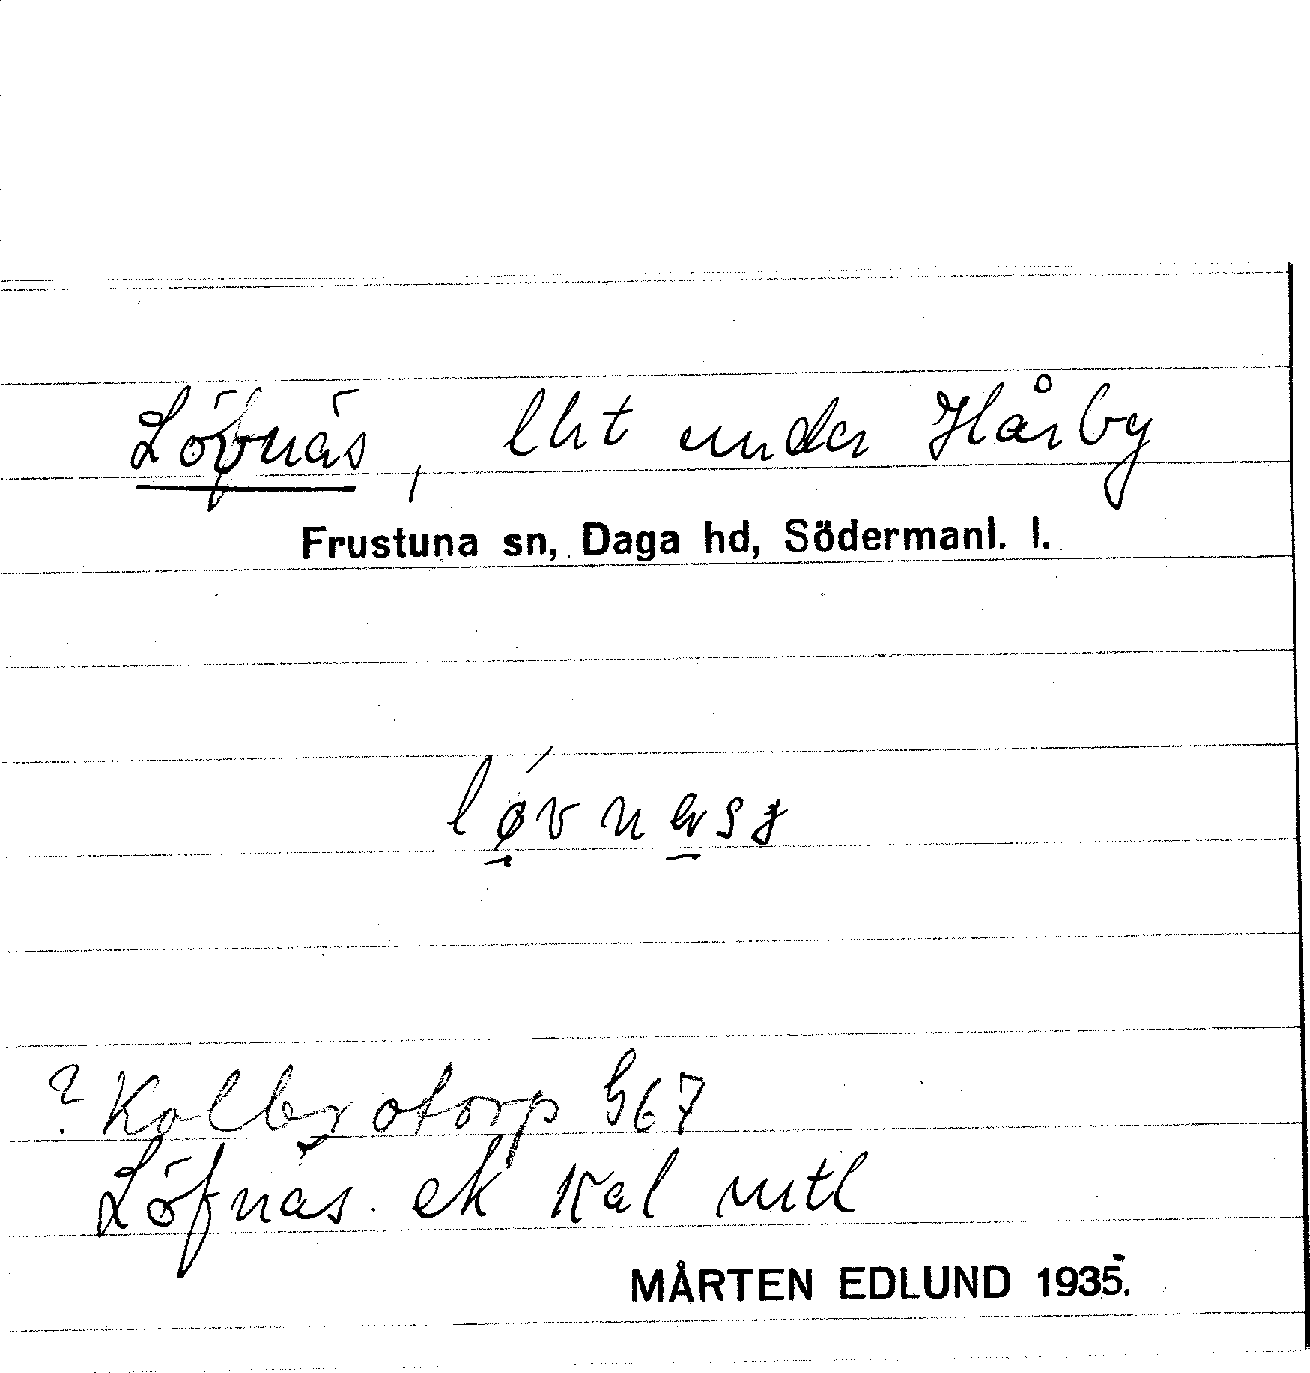 Löfnäs, lht under Hårby
Frustuna sn, Daga hd, Södermanl. l.
? Kolbrotorp G67
Löfnäs. ek Kal mtl
MÅRTEN EDLUND 1935.